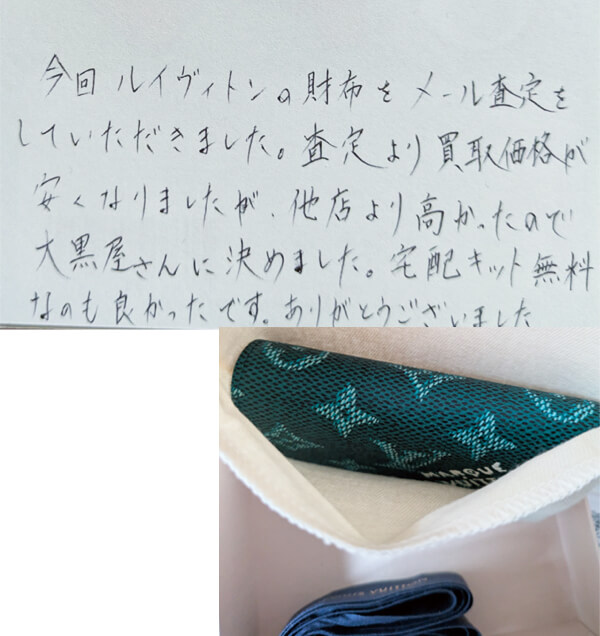 今回ルイヴィトンの財布をメール査定を
していただきました。査定より買取価格が
安くなりましたが、他店より高かったので
大黒屋さんに決めました。宅配キット無料
なのも良かったです。ありがとうございました
MARQUE
VUITTON